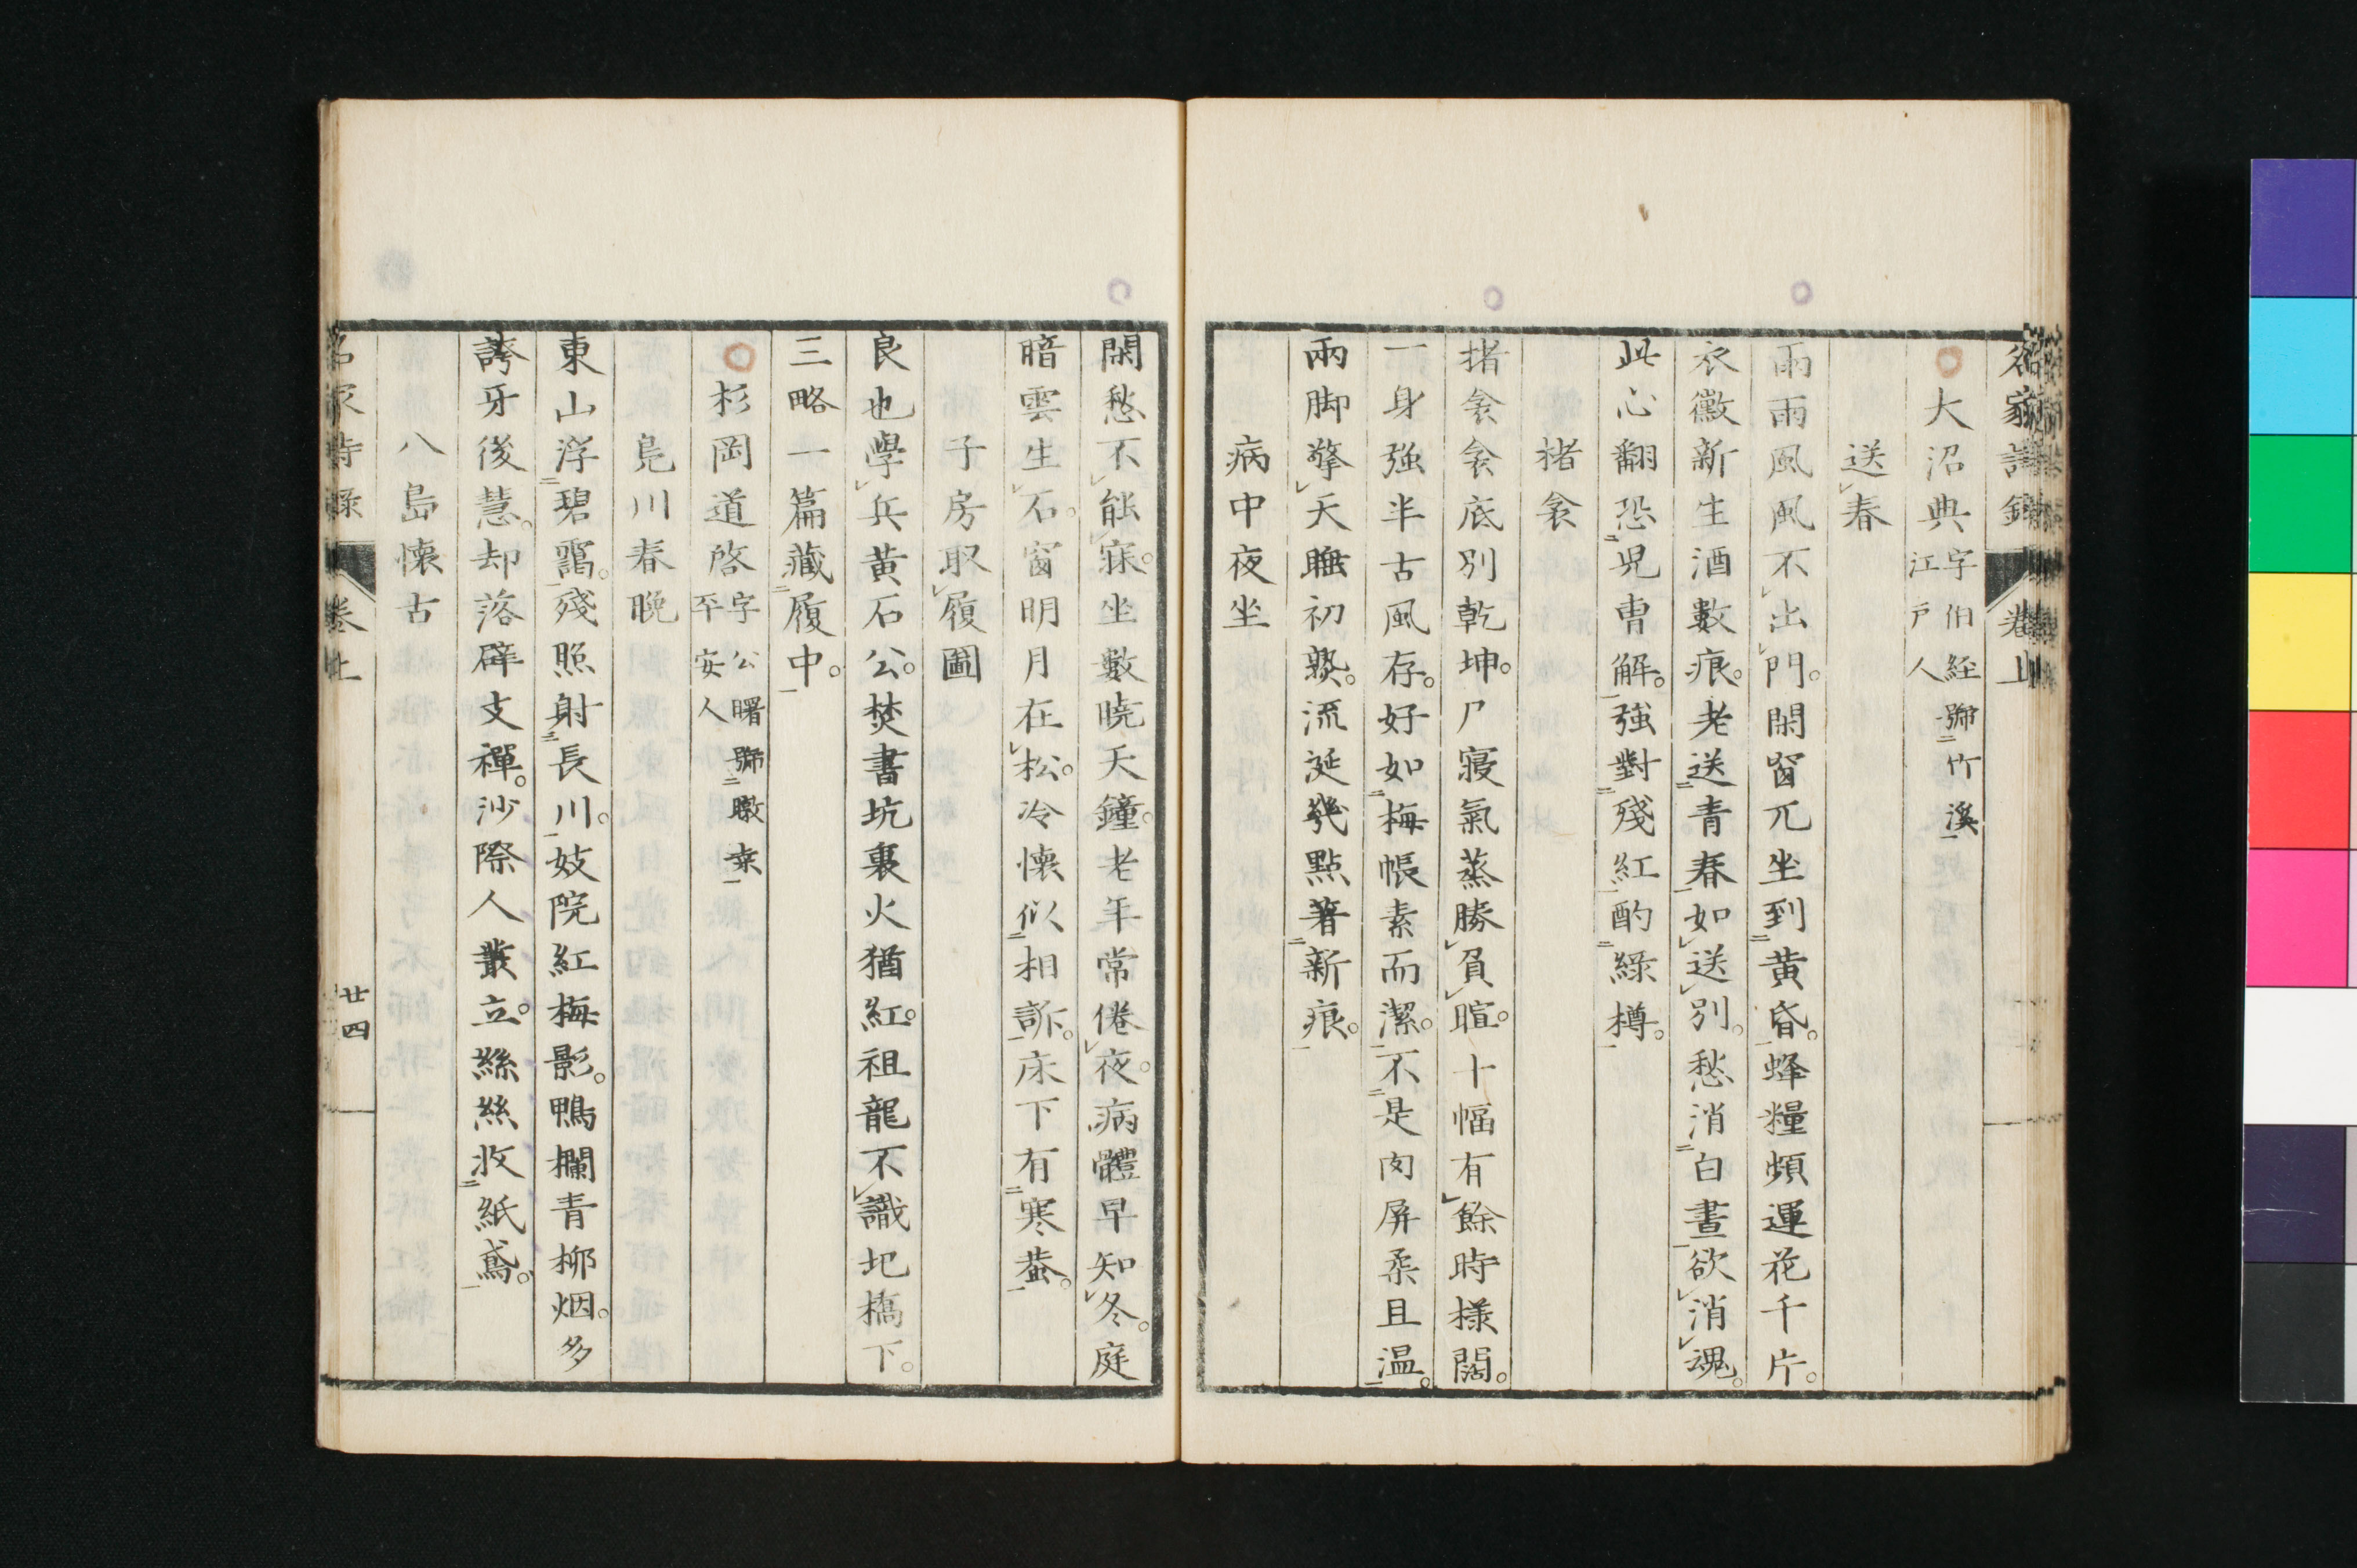 名家詩録 卷上
大沼典 字伯経號竹溪 江戸人
送春
雨雨風風不出門。閑窗兀坐到黄昏。蜂糧頻運花千片。
衣黴新生酒數痕。老送青春如送別。愁消白晝欲消魂。
此心翻恐児曹解。強對殘紅酌緑樽。
楮衾
楮衾衾底別乾坤。尸寢氣蒸勝負暄。十幅有餘時様闊。
一身強半古風存。好如梅帳素而潔。不是肉屏柔且温。
兩脚擎天睡初熟。流涎幾點著新痕。
病中夜坐
閑愁不能寐。坐數曉天鐘。老年常倦夜。病體早知冬。庭
暗雲生石。窗明月在松。冷懷似相訴。床下有寒蛩。
子房取履圖
良也學兵黄石公。焚書坑裏火猶紅。祖龍不識圯橋下。
三略一篇藏履中。
杉岡道啓 字公曙號暾桒 平安人
鳬川春晩
東山浮碧靄。殘照射長川。妓院紅梅影。鴨欄青柳烟。多
誇牙後慧。却落辟支禪。沙際人叢立。絲絲收紙鳶。
八島懷古
名家詩録 卷上 廿四